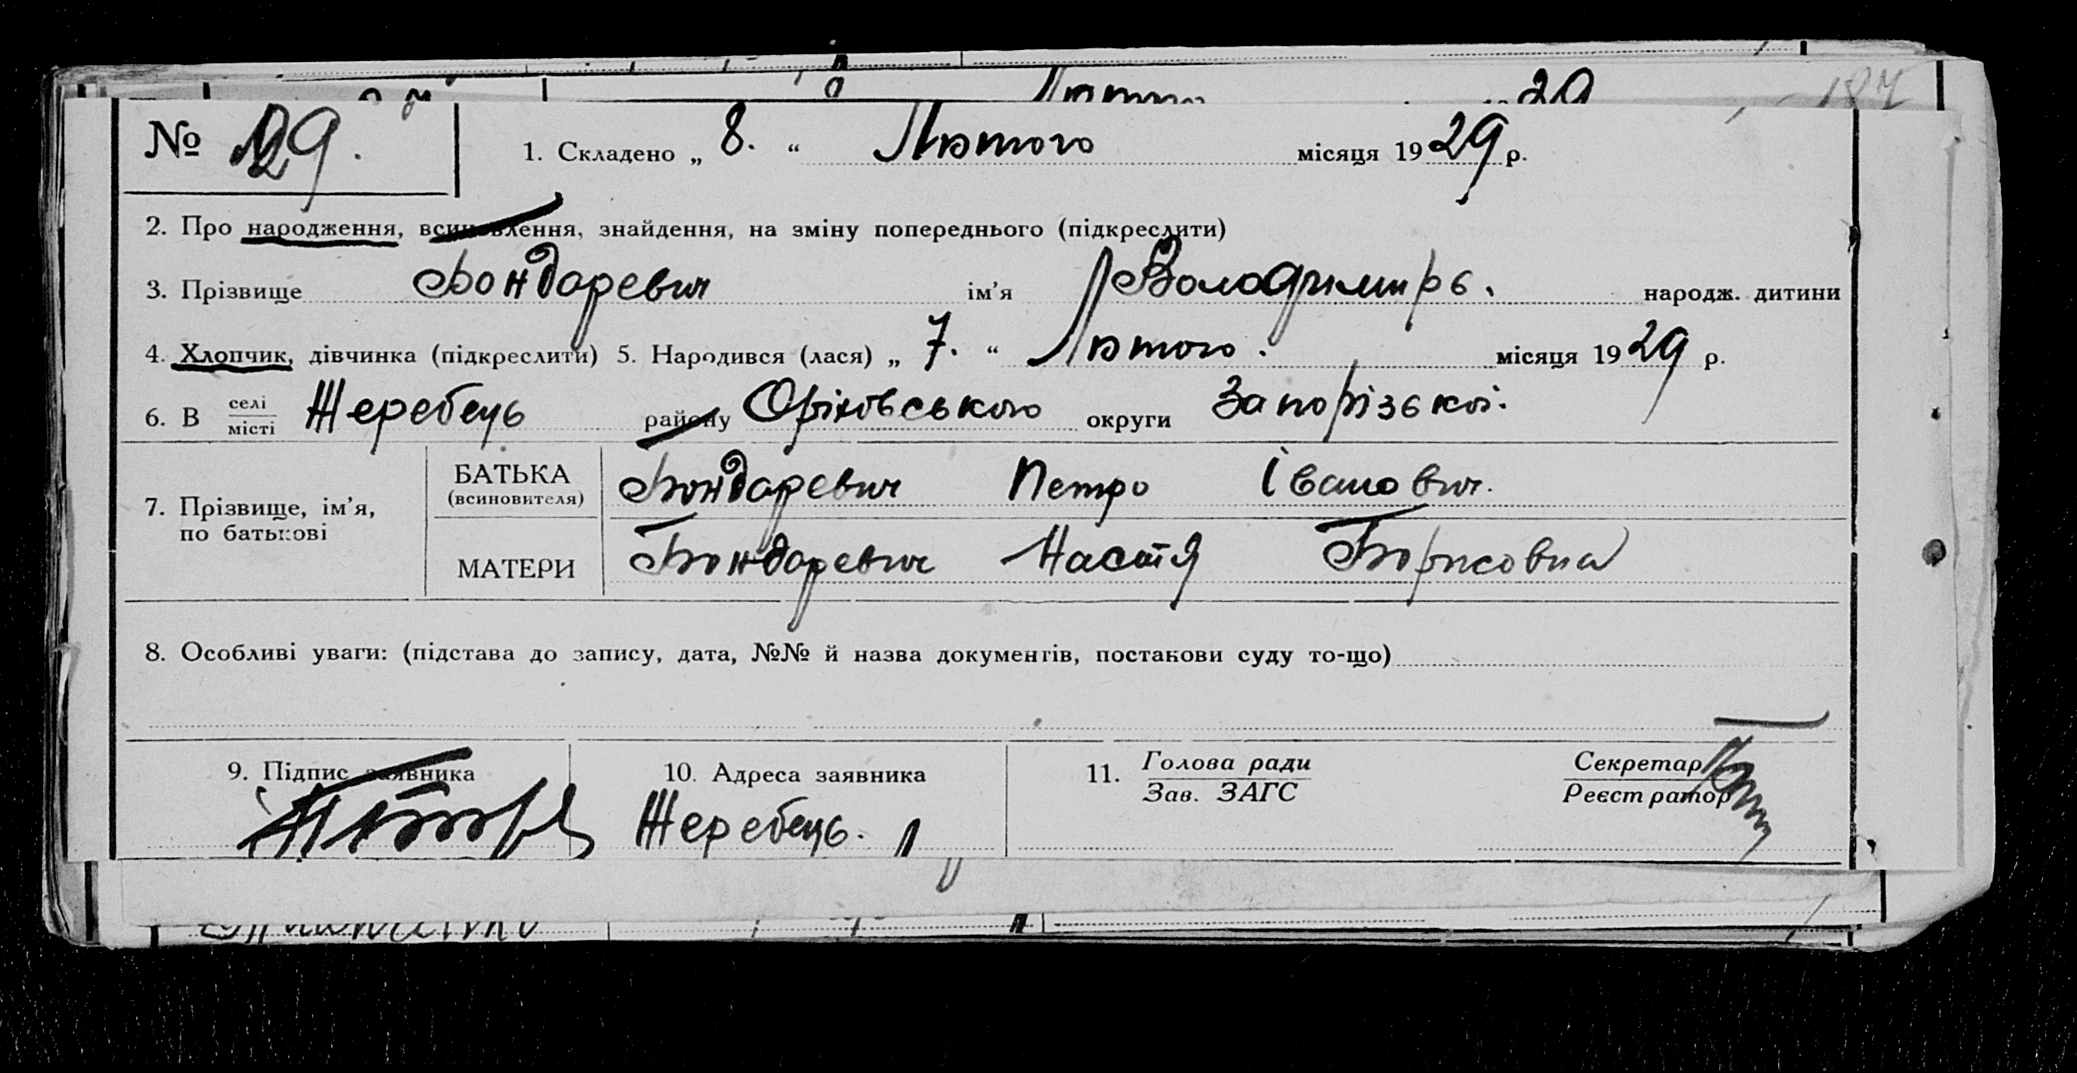 № 29.
1. Складено „ 8. “ Лютого місяця 1929 р.
2. Про народження, всиновлення, знайдення, на зміну попереднього (підкреслити)
3. Прізвище Бондаревич ім'я Володимиръ. народж. дитини
4. Хлопчик, дівчинка (підкреслити) 5. Народився (лася) „ 7. “ Лютого. місяця 1929 р.
6. В селі місті Жеребець району Оріховського округи Запорізької.
7. Прізвище, ім'я, по батькові
БАТЬКА (всиновителя) Бондаревич Петро Іванович.
МАТЕРИ Бондаревич Настя Борисовна
8. Особливі уваги: (підстава до запису, дата, №№ й назва документів, постанови суду то-що)
9. Підпис заявника
10. Адреса заявника
Жеребець.
11. Голова ради
Зав. ЗАГС
Секретар
Реєстратор